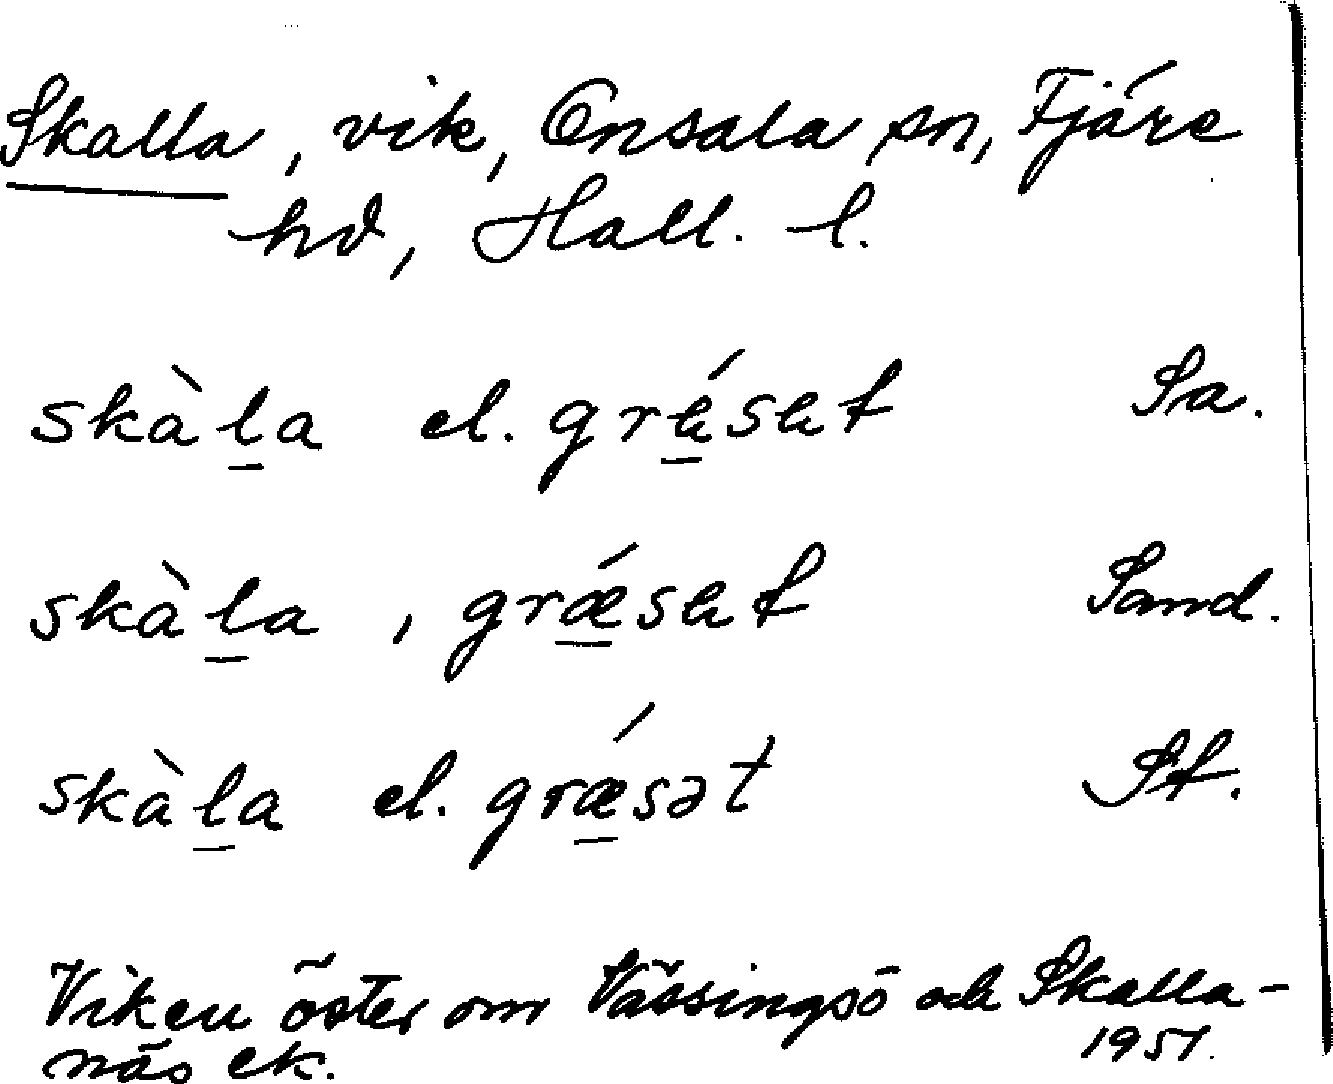 Skalla, vik, Onsala sn, Fjäre
hd, Hall. l.
skàl̲a el. gré̲set Sa.
skàl̲a, grǽ̲set Sand.
skàl̲a el. grǽ̲sət St.
Viken öster om Vässingsö och Skalla-
näs ek. 1951.